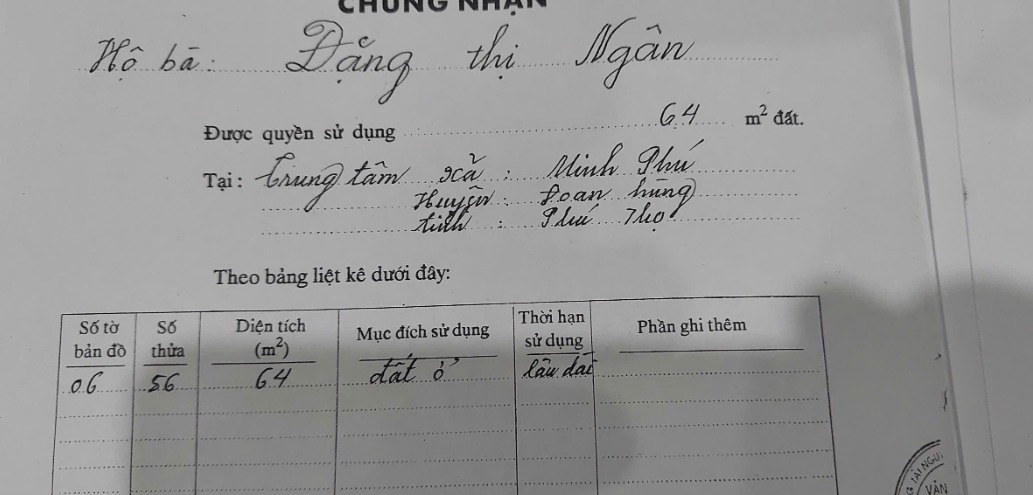 CHỨNG NHẬN
Hộ bà: Đặng thị Ngân
Được quyền sử dụng 64 m² đất.
Tại: Trung tâm xã: Minh Phú
Huyện: Đoan hùng
tỉnh: Phú Thọ
Theo bảng liệt kê dưới đây:
Số tờ bản đồ Số thửa Diện tích (m²) Mục đích sử dụng Thời hạn sử dụng Phần ghi thêm
06 56 64 đất ở lâu dài
TÀI NGU
VĂN